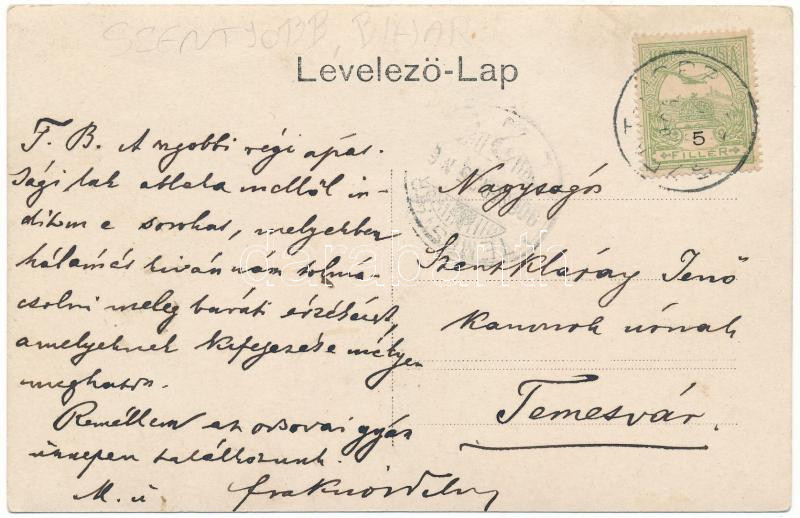 SZENTJOBB, BIHAR
Levelező-Lap
5
FILLÉR
T. B. A nyobbi régi apát-
sági lak ablaka mellől in-
ditom e sorokat, melyekben
hálámat kivánnám tolmá-
csolni meleg baráti érzését,
amelyeknek kifejezése mélyen
meghatott.
Remélem az orsovai gyász
ünnepen találkozunk.
Nagyságos
Szentkláray Jenő
kanonok úrnak
Temesvár.
darabanth.com